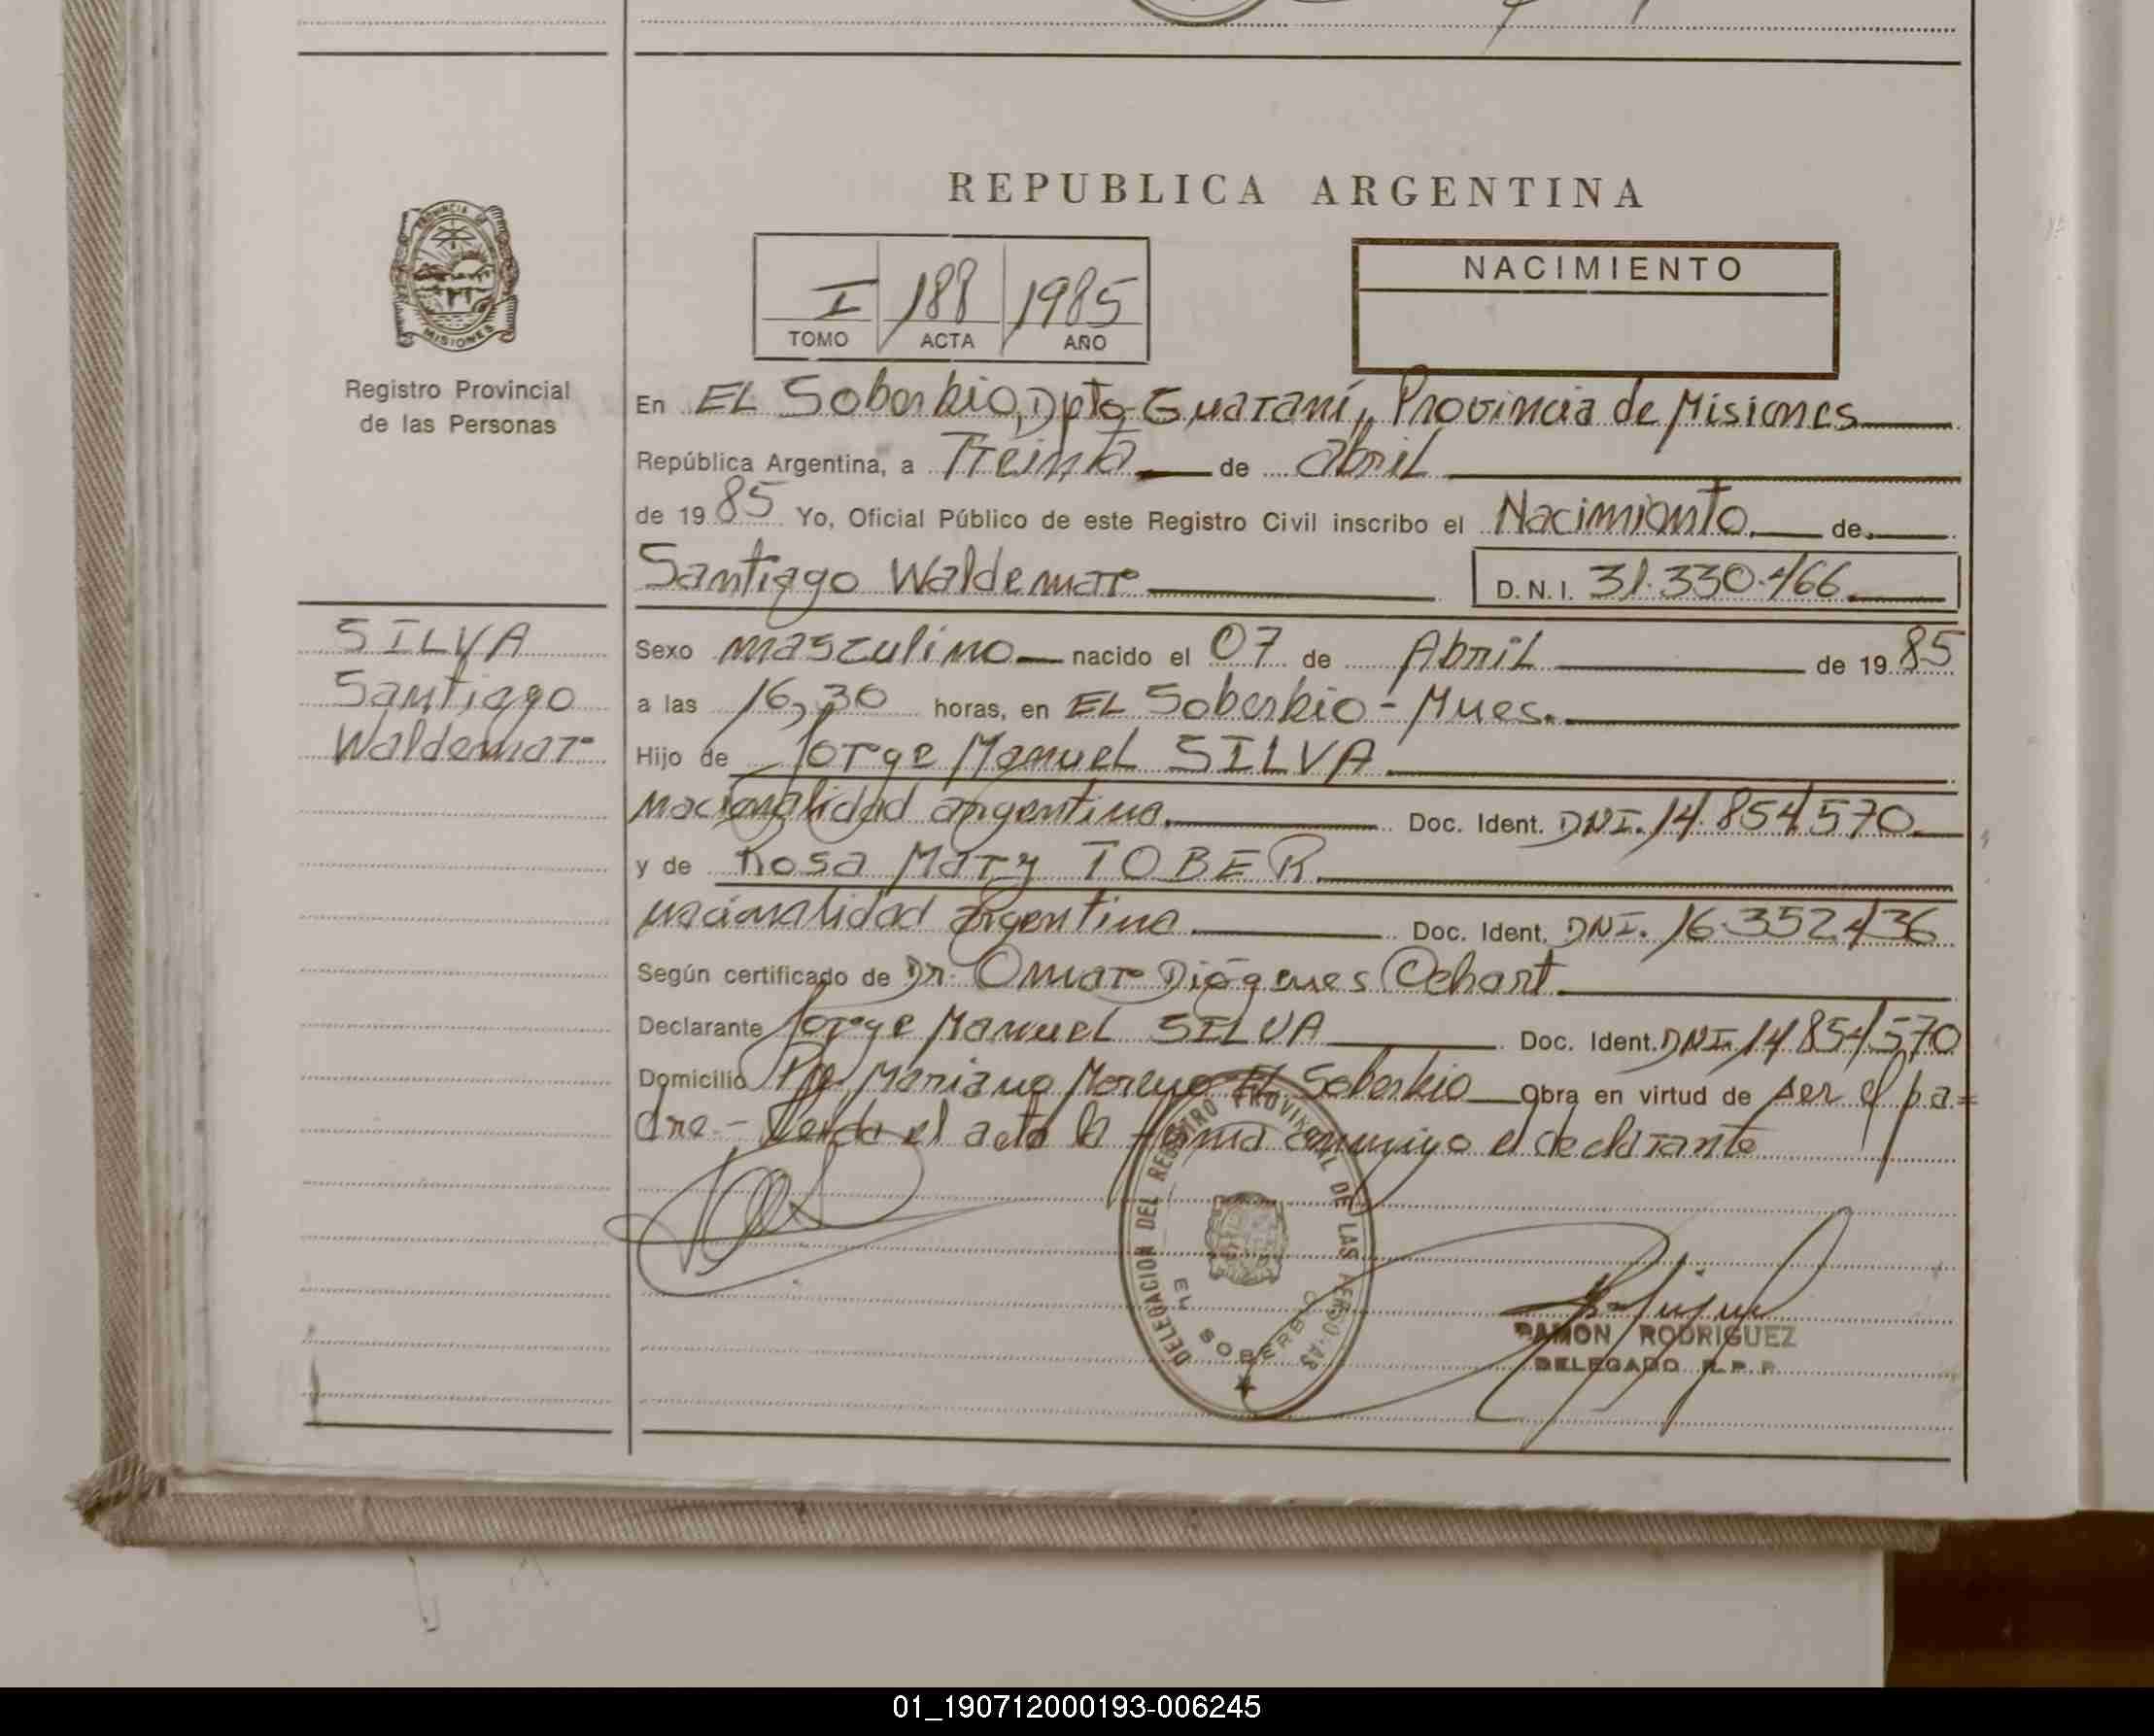 REPUBLICA ARGENTINA
PROVINCIA DE MISIONES
Registro Provincial
de las Personas
I 188 1985
TOMO ACTA AÑO
NACIMIENTO
En EL Soberbio, Dpto Guaraní, Provincia de Misiones
República Argentina, a Treinta de abril
de 1985 Yo, Oficial Público de este Registro Civil inscribo el Nacimiento de
Santiago Waldemar D.N.I. 31.330.466
SILVA
Santiago
Waldemar
Sexo masculino nacido el 07 de Abril de 1985
a las 16,30 horas, en EL Soberbio - Mnes.
Hijo de Jorge Manuel SILVA
nacionalidad argentina Doc. Ident. DNI. 14.854.570
y de Rosa Mary TOBER
nacionalidad argentina Doc. Ident. DNI. 16.352.436
Según certificado de Dr. Omar Diógenes Ochart
Declarante Jorge Manuel SILVA Doc. Ident. DNI. 14.854.570
Domicilio Mariano Moreno El Soberbio Obra en virtud de ser el pa=
dre.- Leída el acta la firma conmigo el declarante
DELEGACION DEL REGISTRO PROVINCIAL DE LAS PERSONAS
EL SOBERBIO
RAMON RODRIGUEZ
DELEGADO R.P.P.
01_190712000193-006245